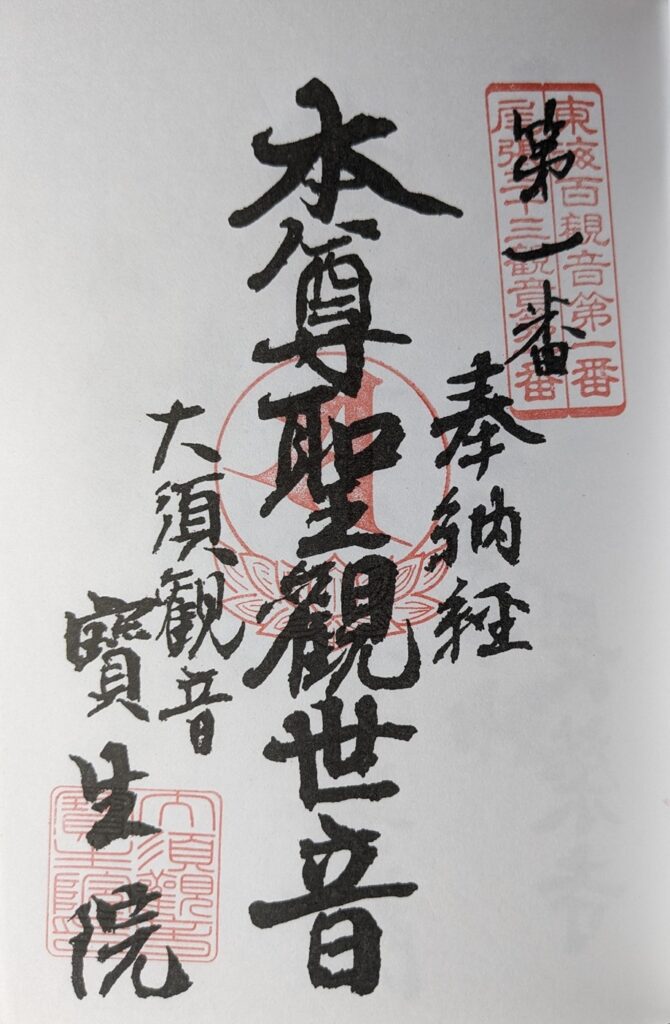 東海百観音第一番
尾張三十三観音第一番
第一番
奉納経
本尊聖觀世音
大須観音
寶生院
大須觀音
寶生院印